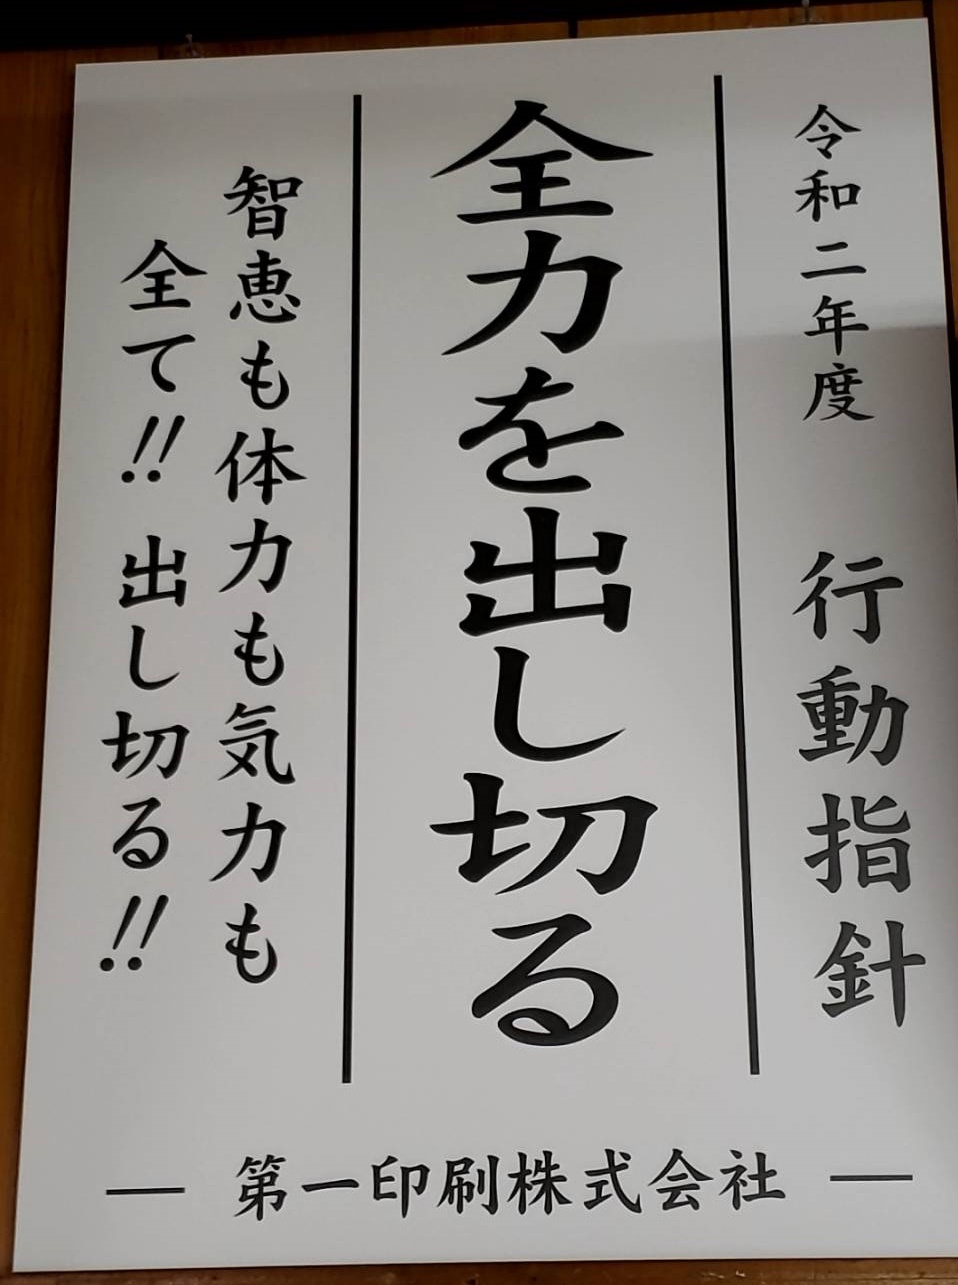 令和二年度 行動指針
全力を出し切る
智恵も体力も気力も
全て!! 出し切る!!
第一印刷株式会社